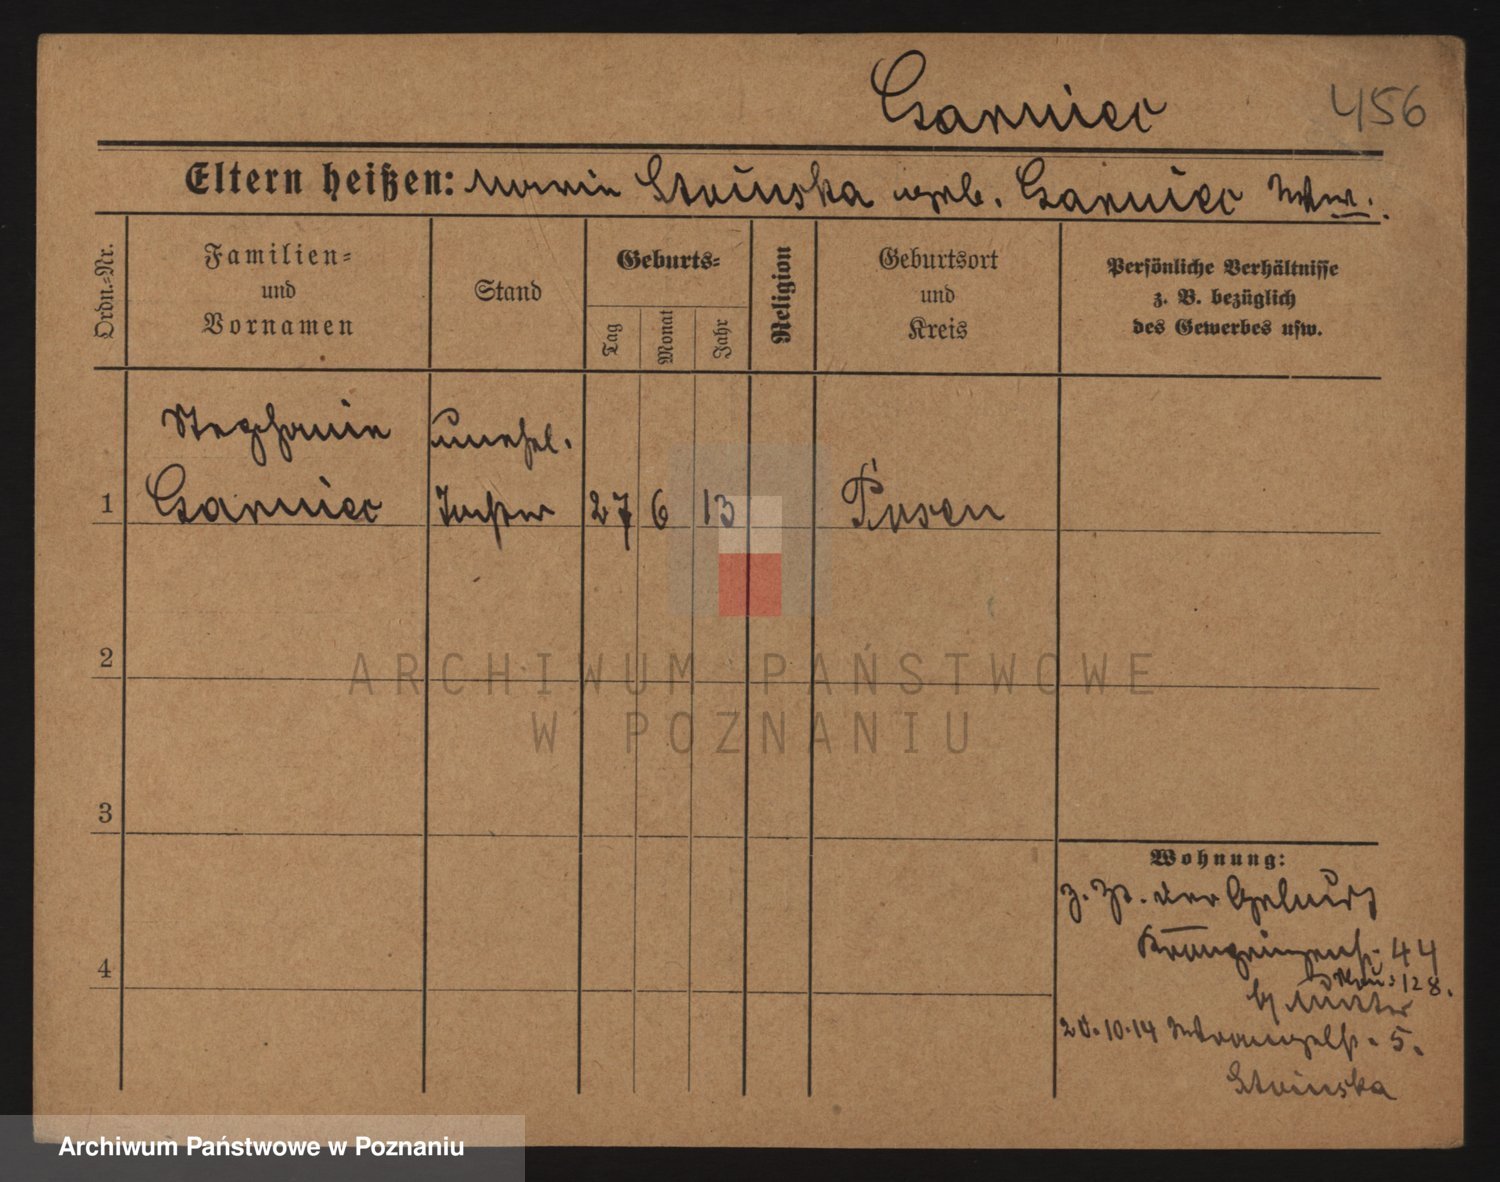 Czarniec 456
Eltern heißen: Maria Stoinska geb. Czarniec Wwe.
Ordn.-Nr.
Familien- und Vornamen
Stand
Geburts-
Tag
Monat
Jahr
Religion
Geburtsort und Kreis
Persönliche Verhältnisse z. B. bezüglich des Gewerbes usw.
Stephanie unehel.
1 Czarniec Tochter 27 6 13 Posen
2
3
4
Wohnung:
z. Zt. der Geburt
44
128.
b/ Mutter
20.10.14 Wrangelstr. 5.
Stoinska
ARCHIWUM PAŃSTWOWE
W POZNANIU
Archiwum Państwowe w Poznaniu